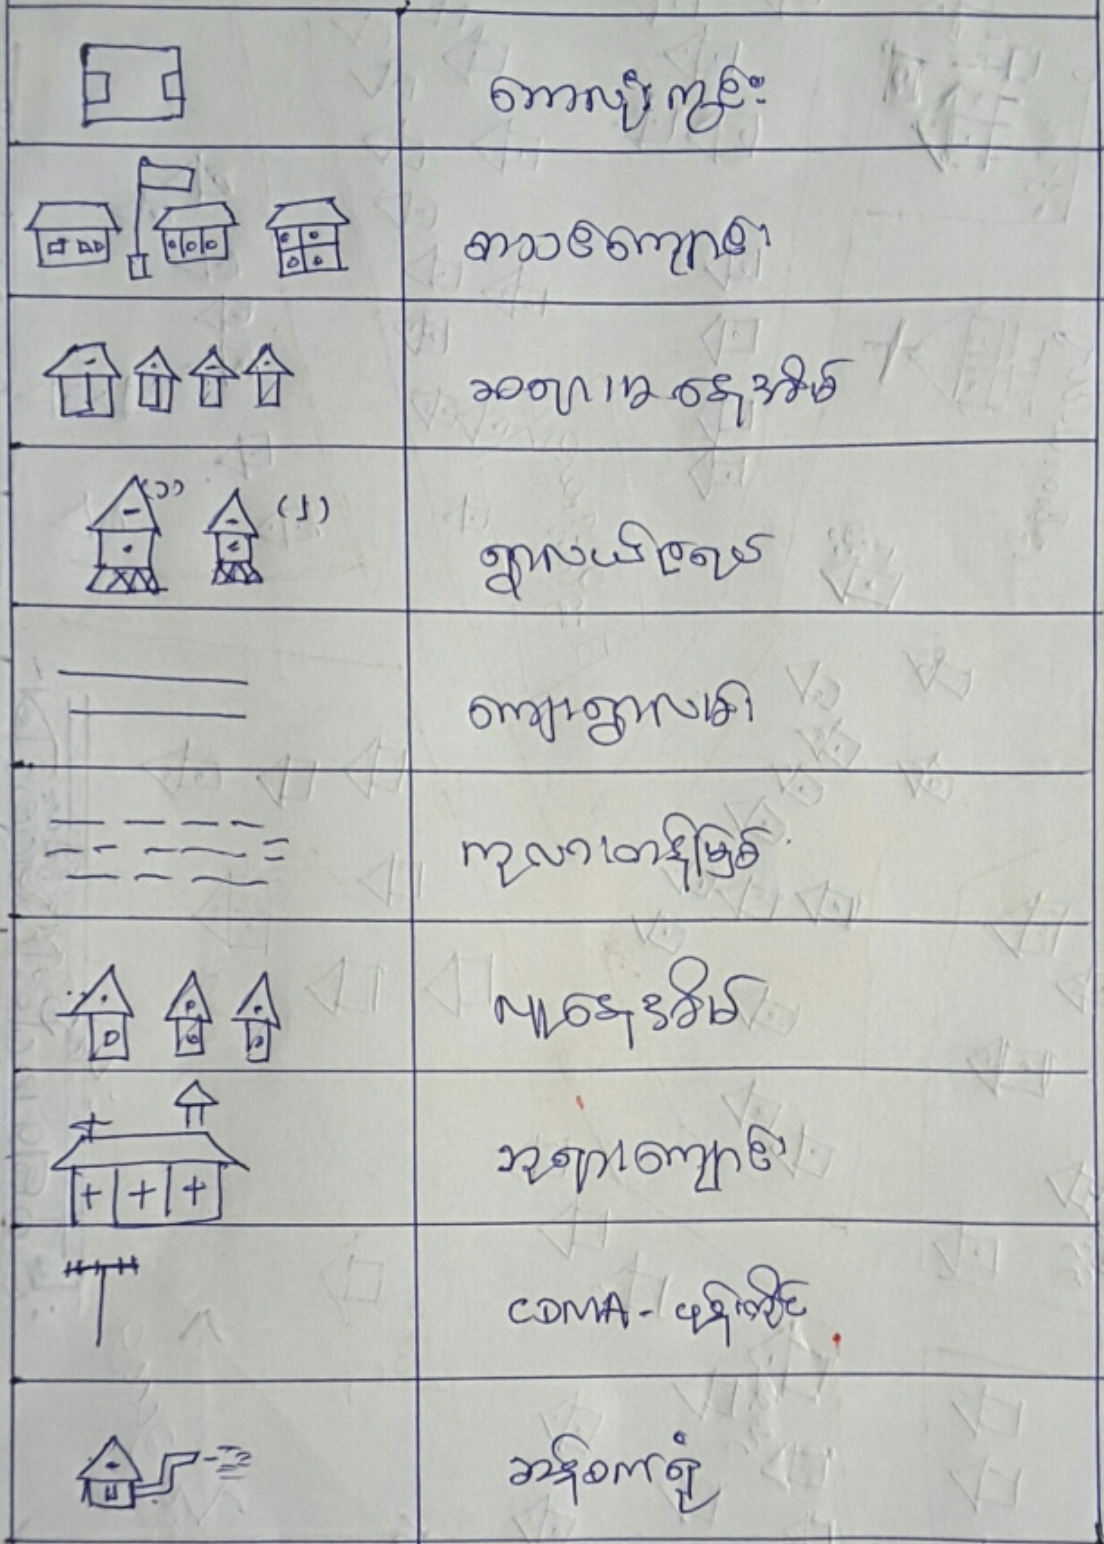 ဘောလုံးကွင်း
စာသင်ကျောင်း
ဆရာ၊မ နေအိမ်
(၁)
(၂)
ရွာလယ်ဇရပ်
ကျေးရွာလမ်း
ကုလားတန်မြစ်
လူနေအိမ်
ဘုရားကျောင်း
CDMA - ဖုန်းတိုင်
ဆန်စက်ရုံ